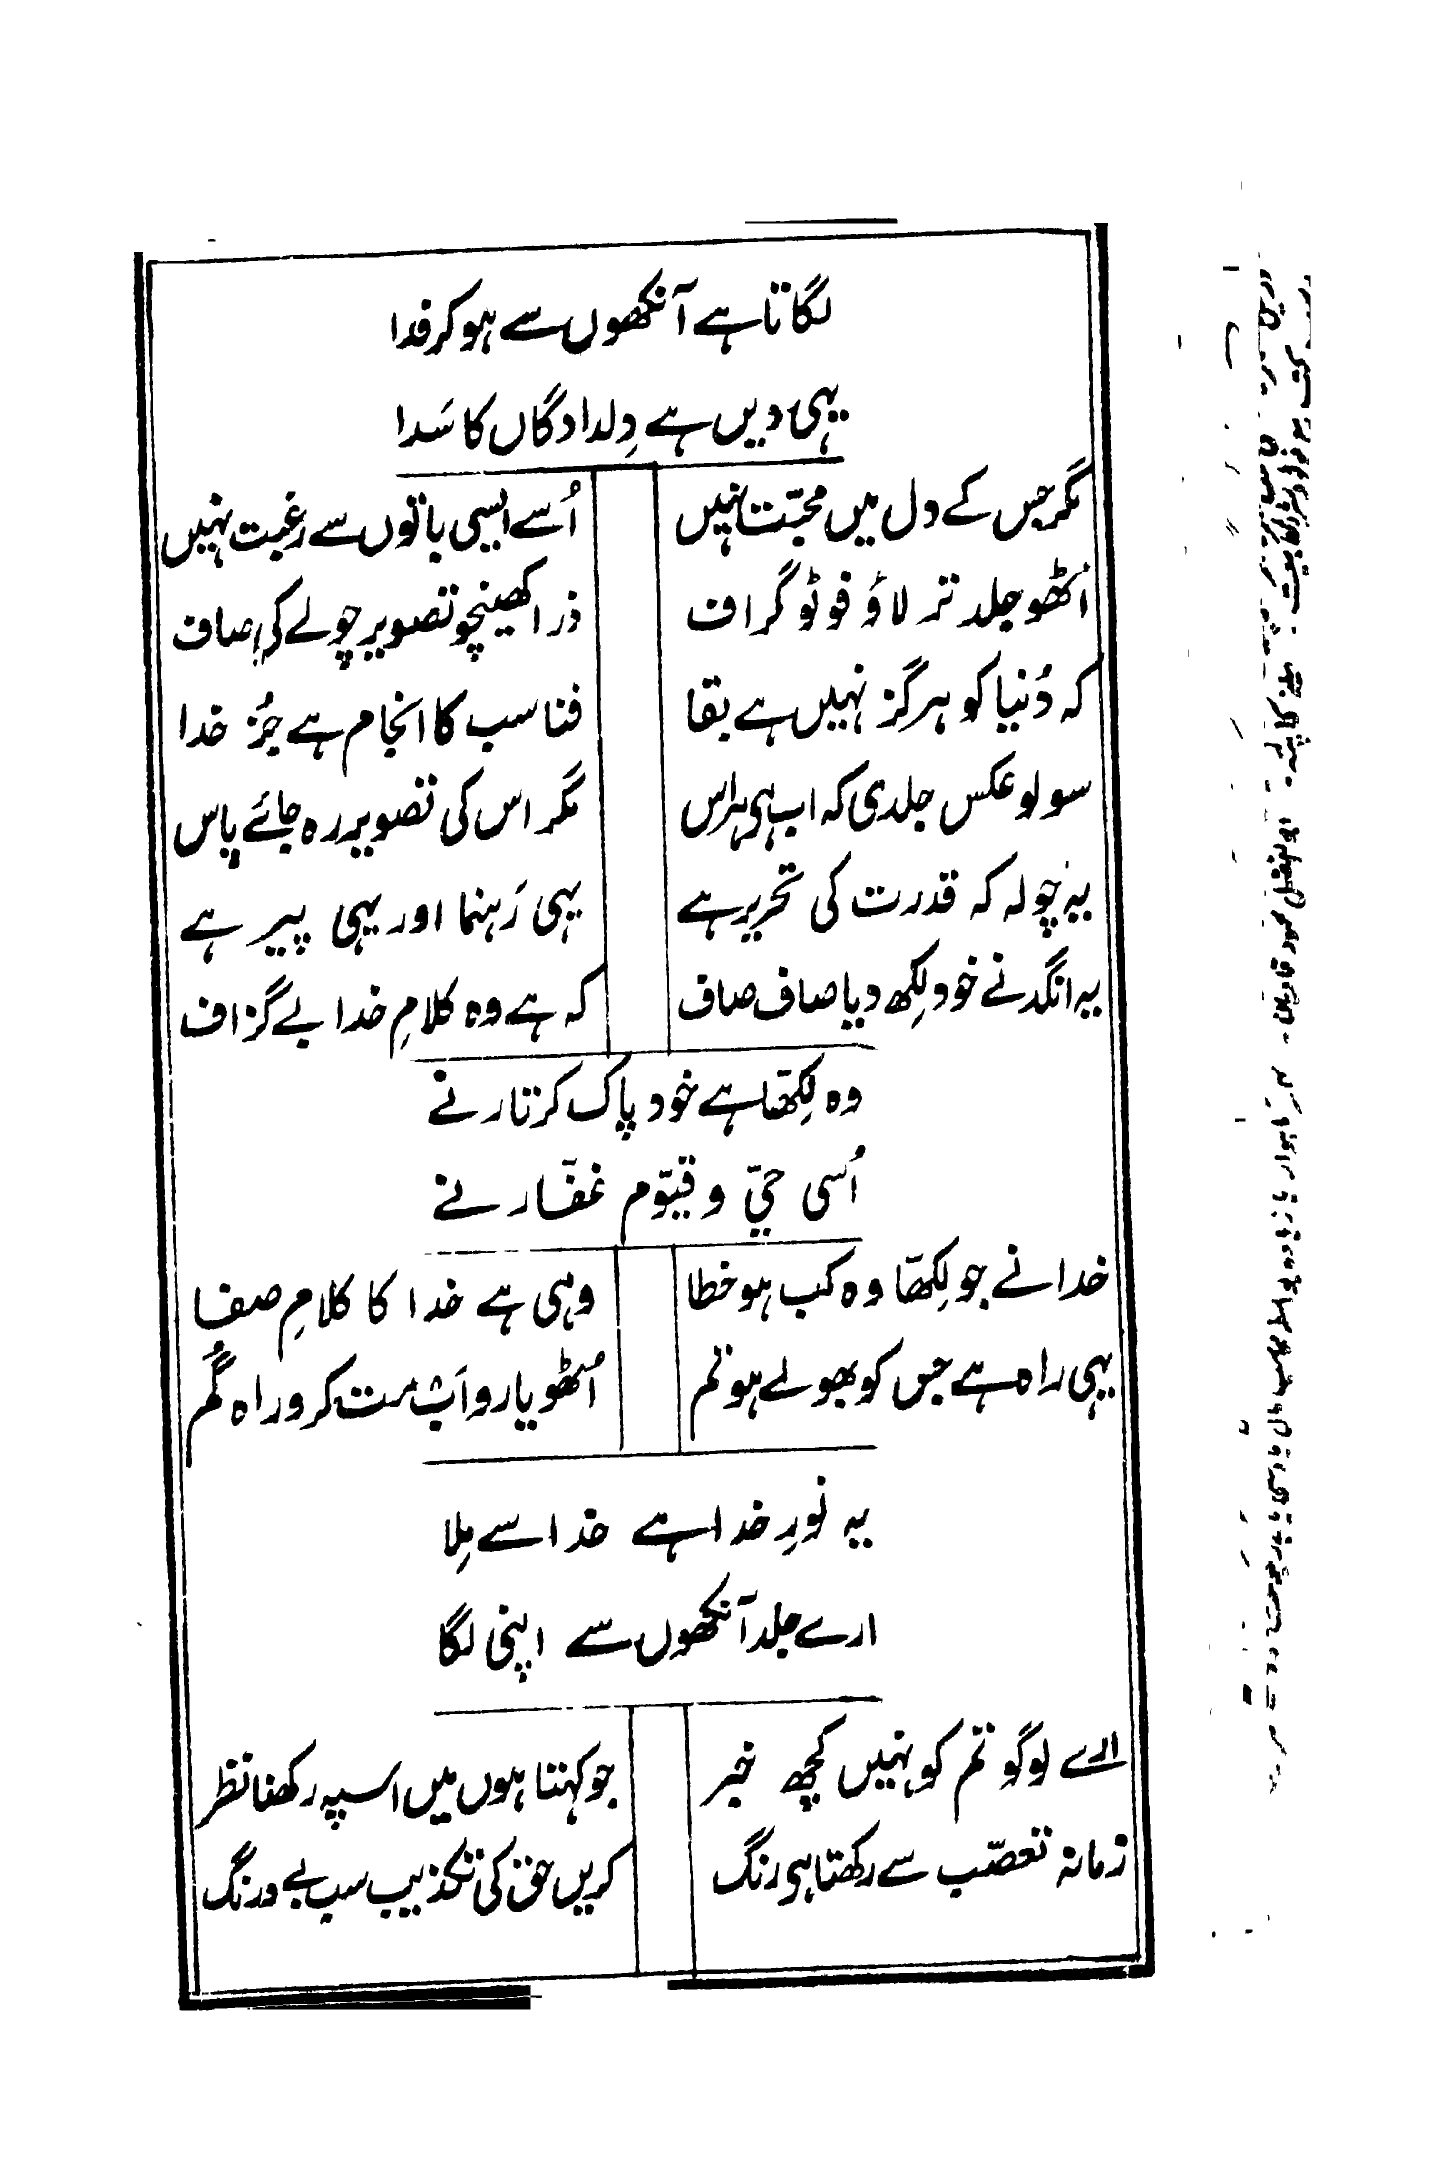 لگاتا ہے آنکھوں سے ہو کر فدا
یہی دیں ہے دِلدادگاں کا سَدا
مگر جس کے دل میں محبّت نہیں اُسے ایسی باتوں سے رغبت نہیں
اُٹھو جلد تر لاؤ فوٹو گراف ذرا کھینچو تصویر چولے کی صاف
کہ دُنیا کو ہرگز نہیں ہے بقا فنا سب کا انجام ہے جُز خدا
سو لو عکس جلدی کہ اب ہی ہراس مگر اس کی تصویر رہ جائے پاس
یہ چولہ کہ قدرت کی تحریر ہے یہی رَہنما اور یہی پیر ہے
یہ انگد نے خود لِکھ دیا صاف صاف کہ ہے وہ کلامِ خدا بے گزاف
وہ لِکھّا ہے خود پاک کرتار نے
اُسی حَیّ و قیّوم غفّار نے
خدا نے جو لِکھّا وہ کب ہو خطا وہی ہے خدا کا کلامِ صفا
یہی راہ ہے جس کو بھولے ہو تم اُٹھو یارو اَب مت کرو راہ گُم
یہ نُورِ خدا ہے خدا سے مِلا
ارے جلد آنکھوں سے اپنی لگا
ارے لوگو تم کو نہیں کچھ خبر جو کہتا ہوں میں اسپہ رکھنا نظر
زمانہ تعصّب سے رکھتا ہی رنگ کریں حق کی تکذیب سب بے درنگ